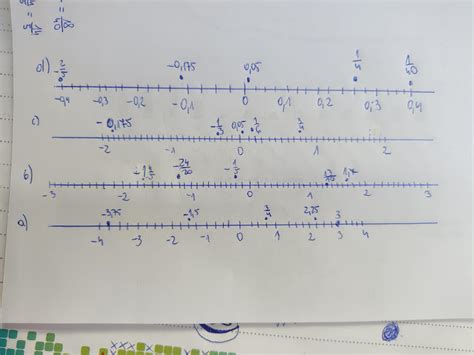 d) -2/5 -0,175 0,05 1/4 1/40
-0,4 -0,3 -0,2 -0,1 0 0,1 0,2 0,3 0,4
c) -0,175 0,05
-2 -1 0 1 2
b) -24/20 1,7
-3 -2 -1 0 1 2 3
a) -3,75 -1,5 3/4 2,25 3
-4 -3 -2 -1 0 1 2 3 4